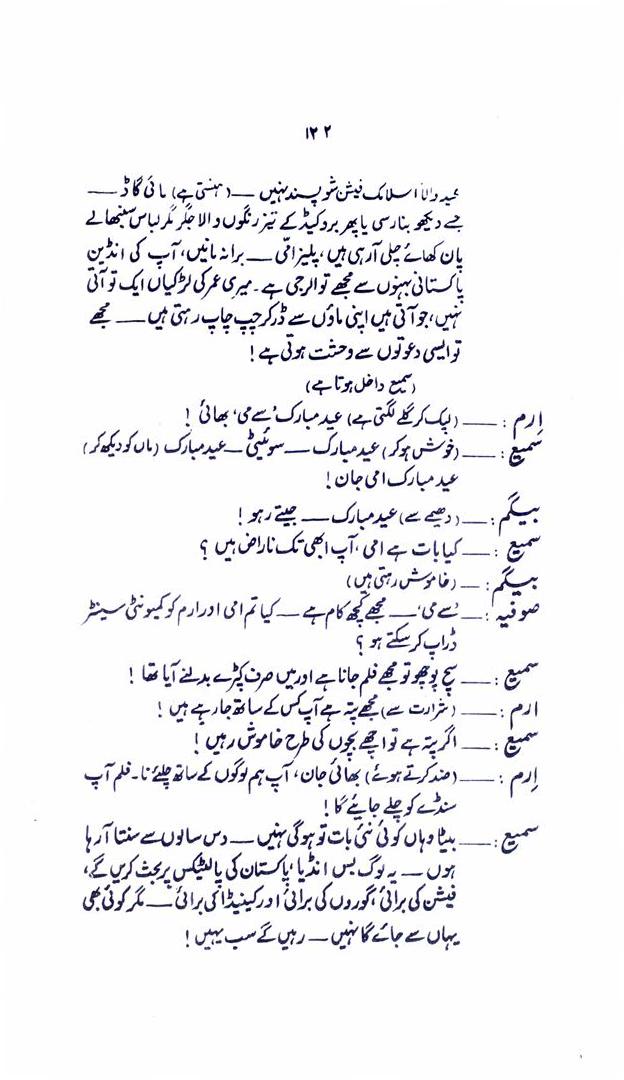 ۱۲۲
عید والا اسلامک فیشن شو پسند نہیں ــــ (ہنستی ہے) مائی گاڈ ــــ
جسے دیکھو بنارسی یا پھر بروکیڈ کے تیز رنگوں والا جگر مگر لباس سنبھالے
پان کھائے چلی آ رہی ہیں، پلیز امّی ــــ برا نہ مانیں، آپ کی انڈین
پاکستانی بہنوں سے مجھے تو الرجی ہے۔ میری عمر کی لڑکیاں ایک تو آتی
نہیں، جو آتی ہیں اپنی ماؤں سے ڈر کر چپ چاپ رہتی ہیں ــــ مجھے
تو ایسی دعوتوں سے وحشت ہوتی ہے!
(سمیع داخل ہوتا ہے)
اِرم : ــــ (لپک کر گلے لگتی ہے) عید مبارک 'سے می' بھائی!
سمیع : ــــ (خوش ہو کر) عید مبارک ــــ سوئیٹی ــ عید مبارک (ماں کو دیکھ کر)
عید مبارک امی جان!
بیگم : ــــ (دھیمے سے) عید مبارک ــــ جیتے رہو!
سمیع : ــــ کیا بات ہے امی، آپ ابھی تک ناراض ہیں ؟
بیگم : ــــ (خاموش رہتی ہیں)
صوفیہ : ــــ 'سے می' ــــ مجھے کچھ کام ہے ــــ کیا تم امی اور ارم کو کمیونٹی سینٹر
ڈراپ کر سکتے ہو ؟
سمیع : ــــ سچ پوچھو تو مجھے فلم جانا ہے اور میں صرف کپڑے بدلنے آیا تھا!
ارم : ــــ (شرارت سے) مجھے پتہ ہے آپ کس کے ساتھ جا رہے ہیں!
سمیع : ــــ اگر پتہ ہے تو اچھے بچوں کی طرح خاموش رہیں!
اِرم : ــــ (ضد کرتے ہوئے) بھائی جان، آپ ہم لوگوں کے ساتھ چلئے نا۔ فلم آپ
سنڈے کو چلے جایئے گا!
سمیع : ــــ بیٹا وہاں کوئی نئی بات تو ہو گی نہیں ــــ دس سالوں سے سنتا آ رہا
ہوں ــــ یہ لوگ بس انڈیا، پاکستان کی پالیٹیکس پر بحث کریں گے،
فیشن کی برائی، گوروں کی برائی اور کینیڈا کی برائی ــــ مگر کوئی بھی
یہاں سے جائے گا نہیں ــــ رہیں گے سب یہیں!